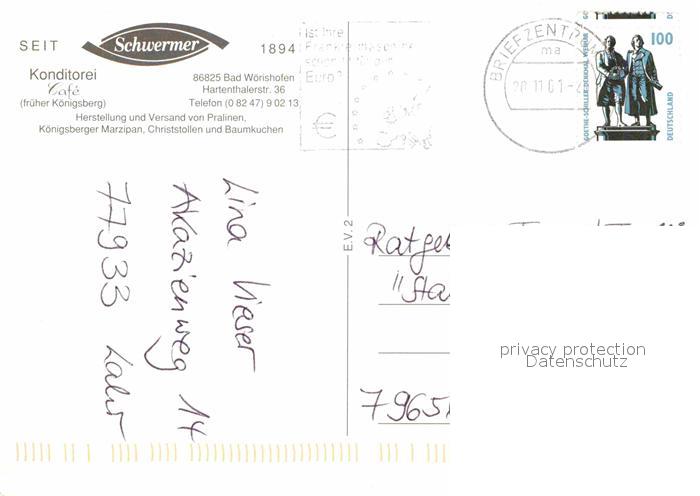 SEIT Schwermer 1894
Konditorei
Café
(früher Königsberg)
86825 Bad Wörishofen
Hartenthalerstr. 36
Telefon (0 82 47) 9 02 13
Herstellung und Versand von Pralinen,
Königsberger Marzipan, Christstollen und Baumkuchen
Ist Ihre
Frankiermaschine
schon fit für den
Euro?
BRIEFZENTRUM
ma
20.11.01
GOETHE-SCHILLER-DENKMAL WEIMAR
100
DEUTSCHLAND
Lina Vieser
Akazienweg 14
77933 Lahr
E.V. 2
Ratge
"Sta
7965
privacy protection
Datenschutz